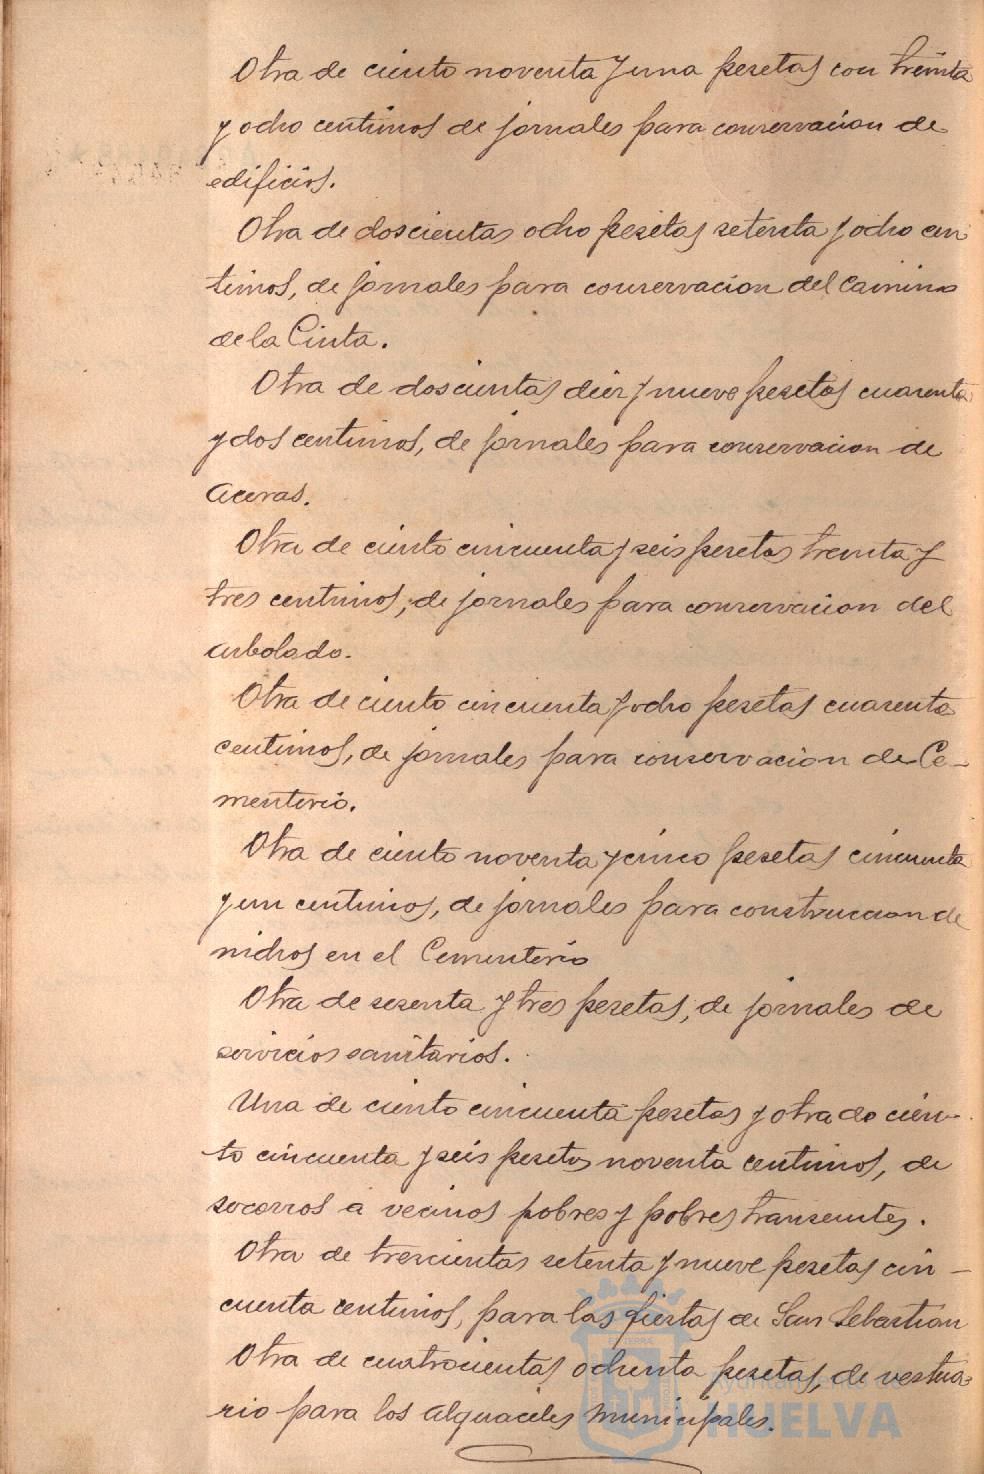 Otra de ciento noventa y una pesetas con treinta
y ocho centimos de jornales para conservacion de
edificios.
Otra de doscientas ocho pesetas setenta y ocho cen
timos, de jornales para conservacion del Camino
de la Cinta.
Otra de doscientas diez y nueve pesetas cuarenta
y dos centimos, de jornales para conservacion de
Aceras.
Otra de ciento cincuenta y seis pesetas treinta y
tres centimos, de jornales para conservacion del
arbolado.
Otra de ciento cincuenta y ocho pesetas cuarenta
centimos, de jornales para conservacion de Ce-
menterio.
Otra de ciento noventa y cinco pesetas cincuenta
y un centimos, de jornales para construccion de
nichos en el Cementerio
Otra de sesenta y tres pesetas, de jornales de
servicios sanitarios.
Una de ciento cincuenta pesetas y otra de cien-
to cincuenta y seis pesetas noventa centimos, de
socorros a vecinos pobres y pobres transeuntes.
Otra de trescientas setenta y nueve pesetas cin-
cuenta centimos, para las fiestas de San Sebastian
Otra de cuatrocientas ochenta pesetas, de vestua-
rio para los alguaciles municipales.
Ayuntamiento de
HUELVA